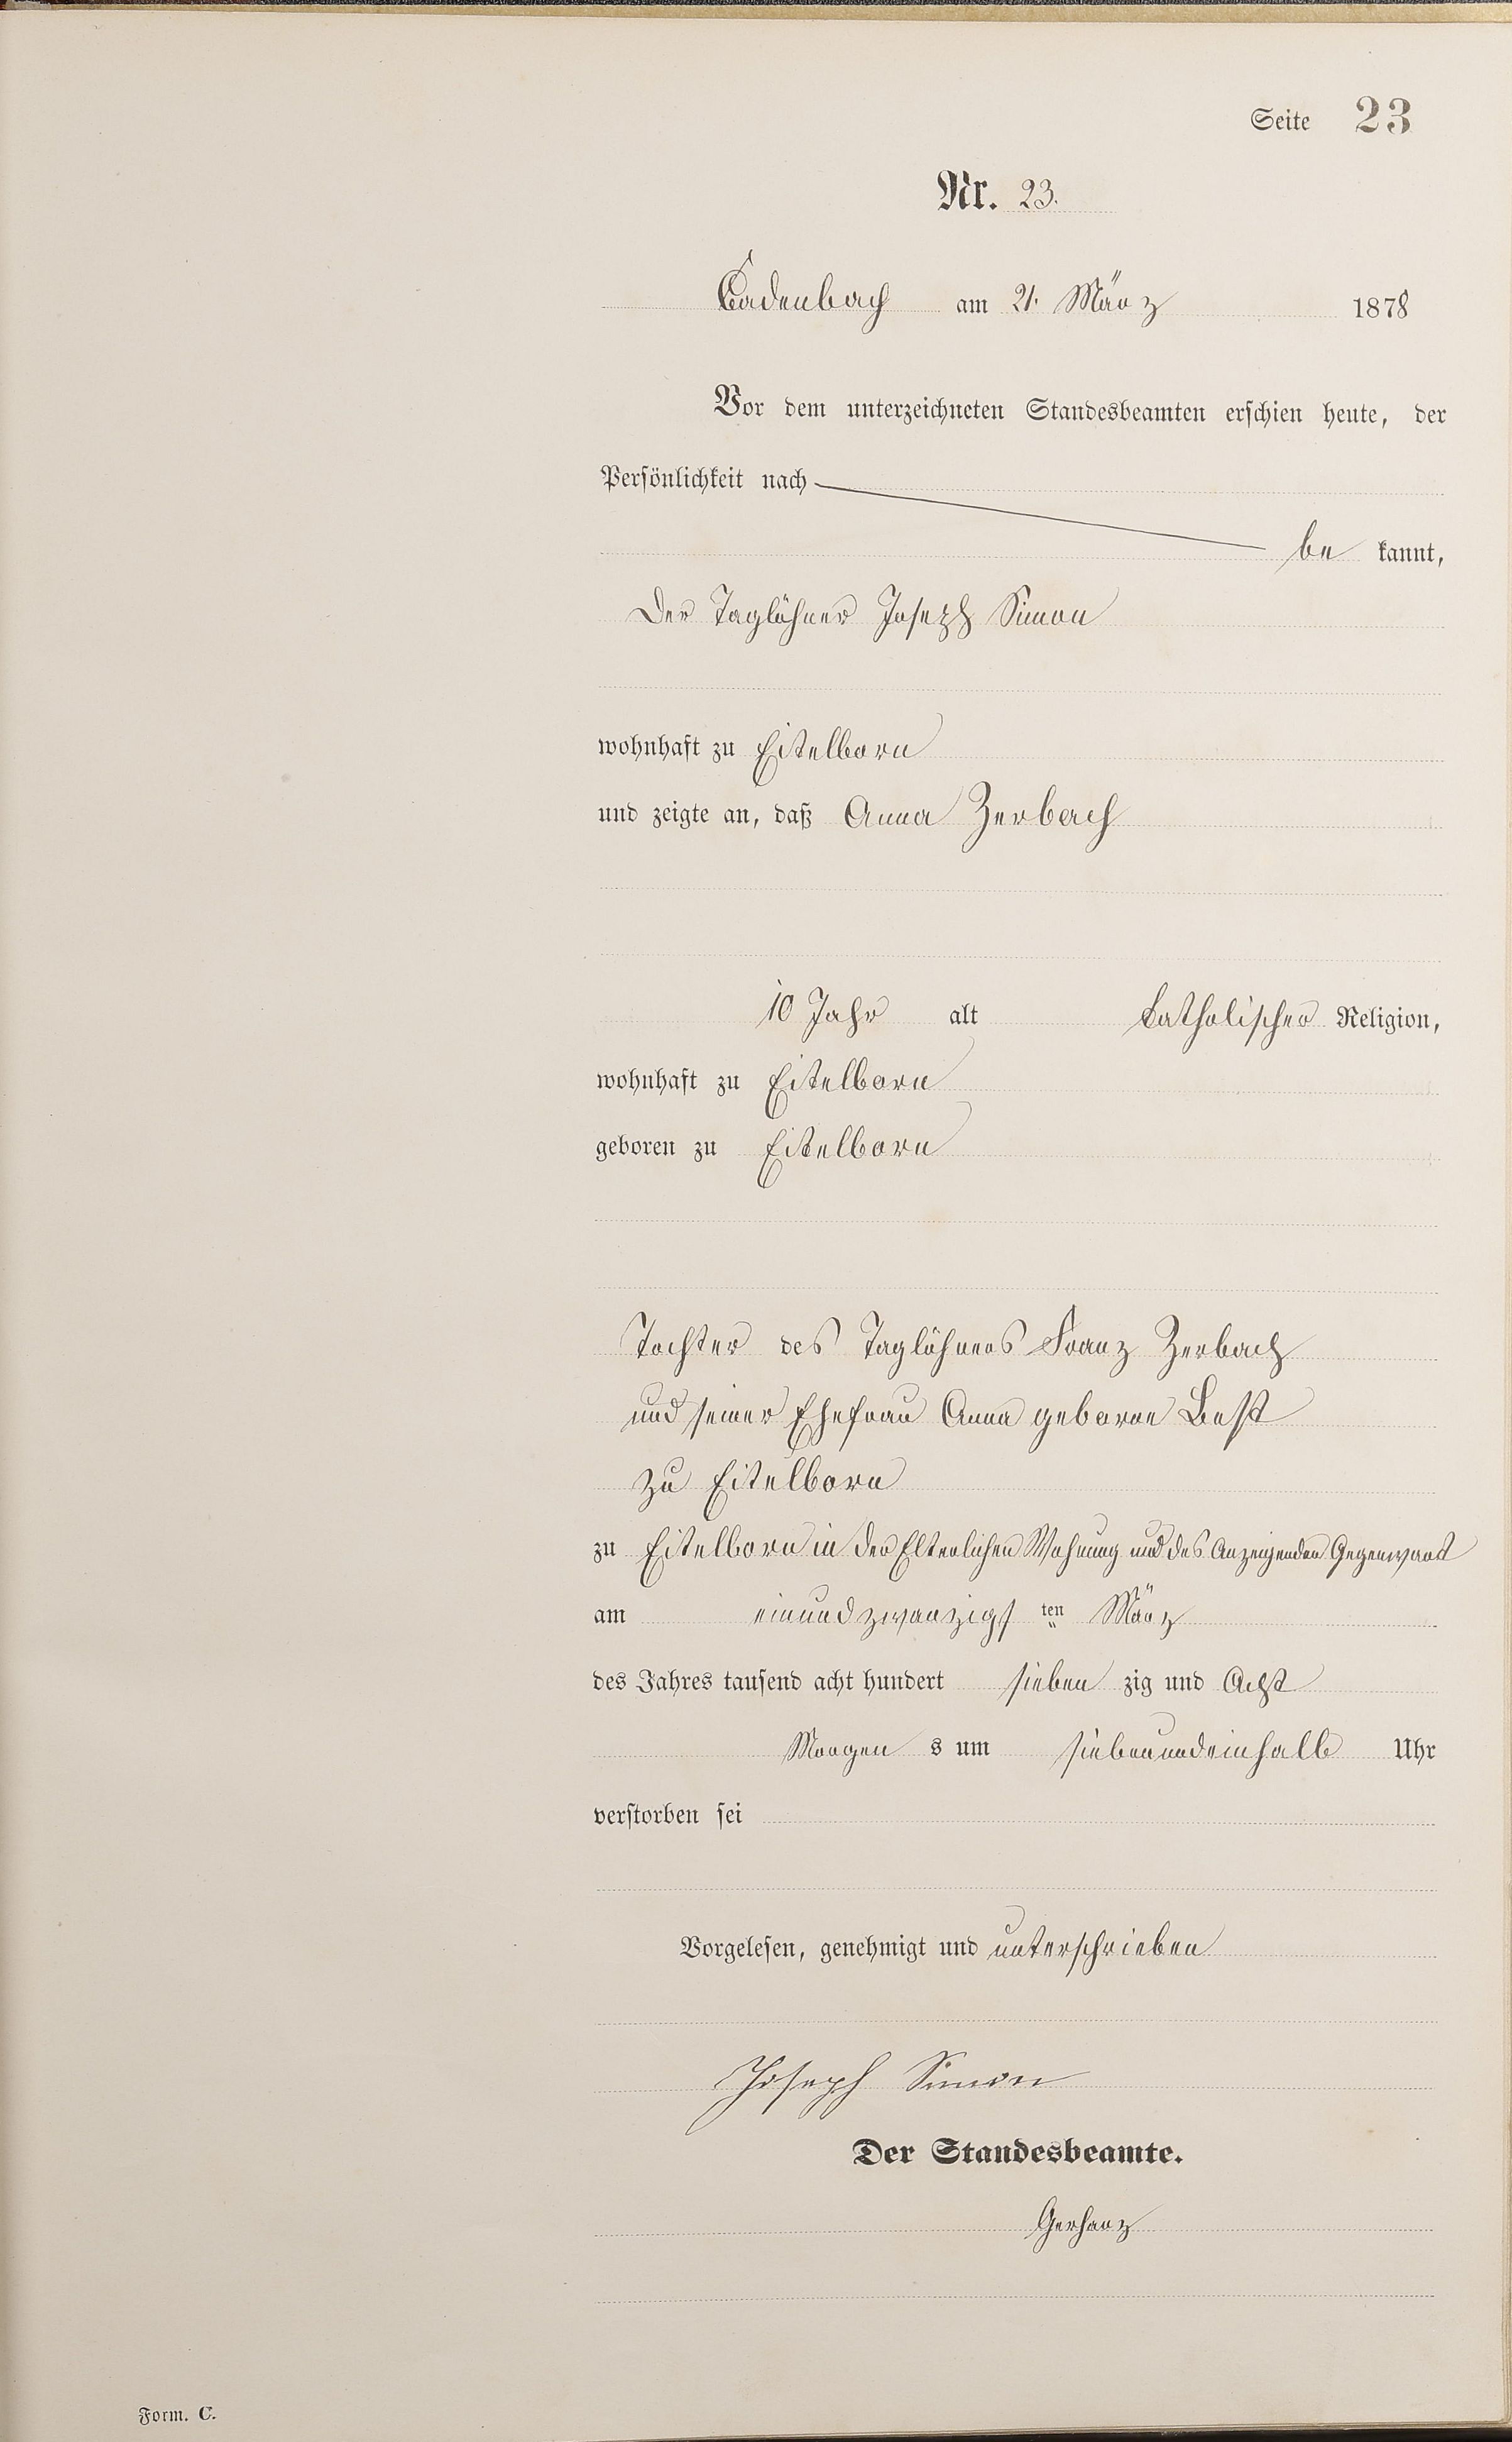 Seite 23
Nr. 23.
Cadenbach am 21. März 1878
Vor dem unterzeichneten Standesbeamten erschien heute, der
Persönlichkeit nach
be kannt,
Der Taglöhner Joseph Simon
wohnhaft zu Eitelborn
und zeigte an, daß Anna Zerbach
10 Jahr alt katholischer Religion,
wohnhaft zu Eitelborn
geboren zu Eitelborn
Tochter des Taglöhners Franz Zerbach
und seiner Ehefrau Anna geborne Best
zu Eitelborn
zu Eitelborn in der Elterlichen Wohnung und des Anzeigenden Gegenwart
am einundzwanzigs ten März
des Jahres tausend acht hundert sieben zig und Acht
Morgen s um siebenundeinhalb Uhr
verstorben sei
Vorgelesen, genehmigt und unterschrieben
Joseph Simon
Der Standesbeamte.
Gerharz
Form. C.